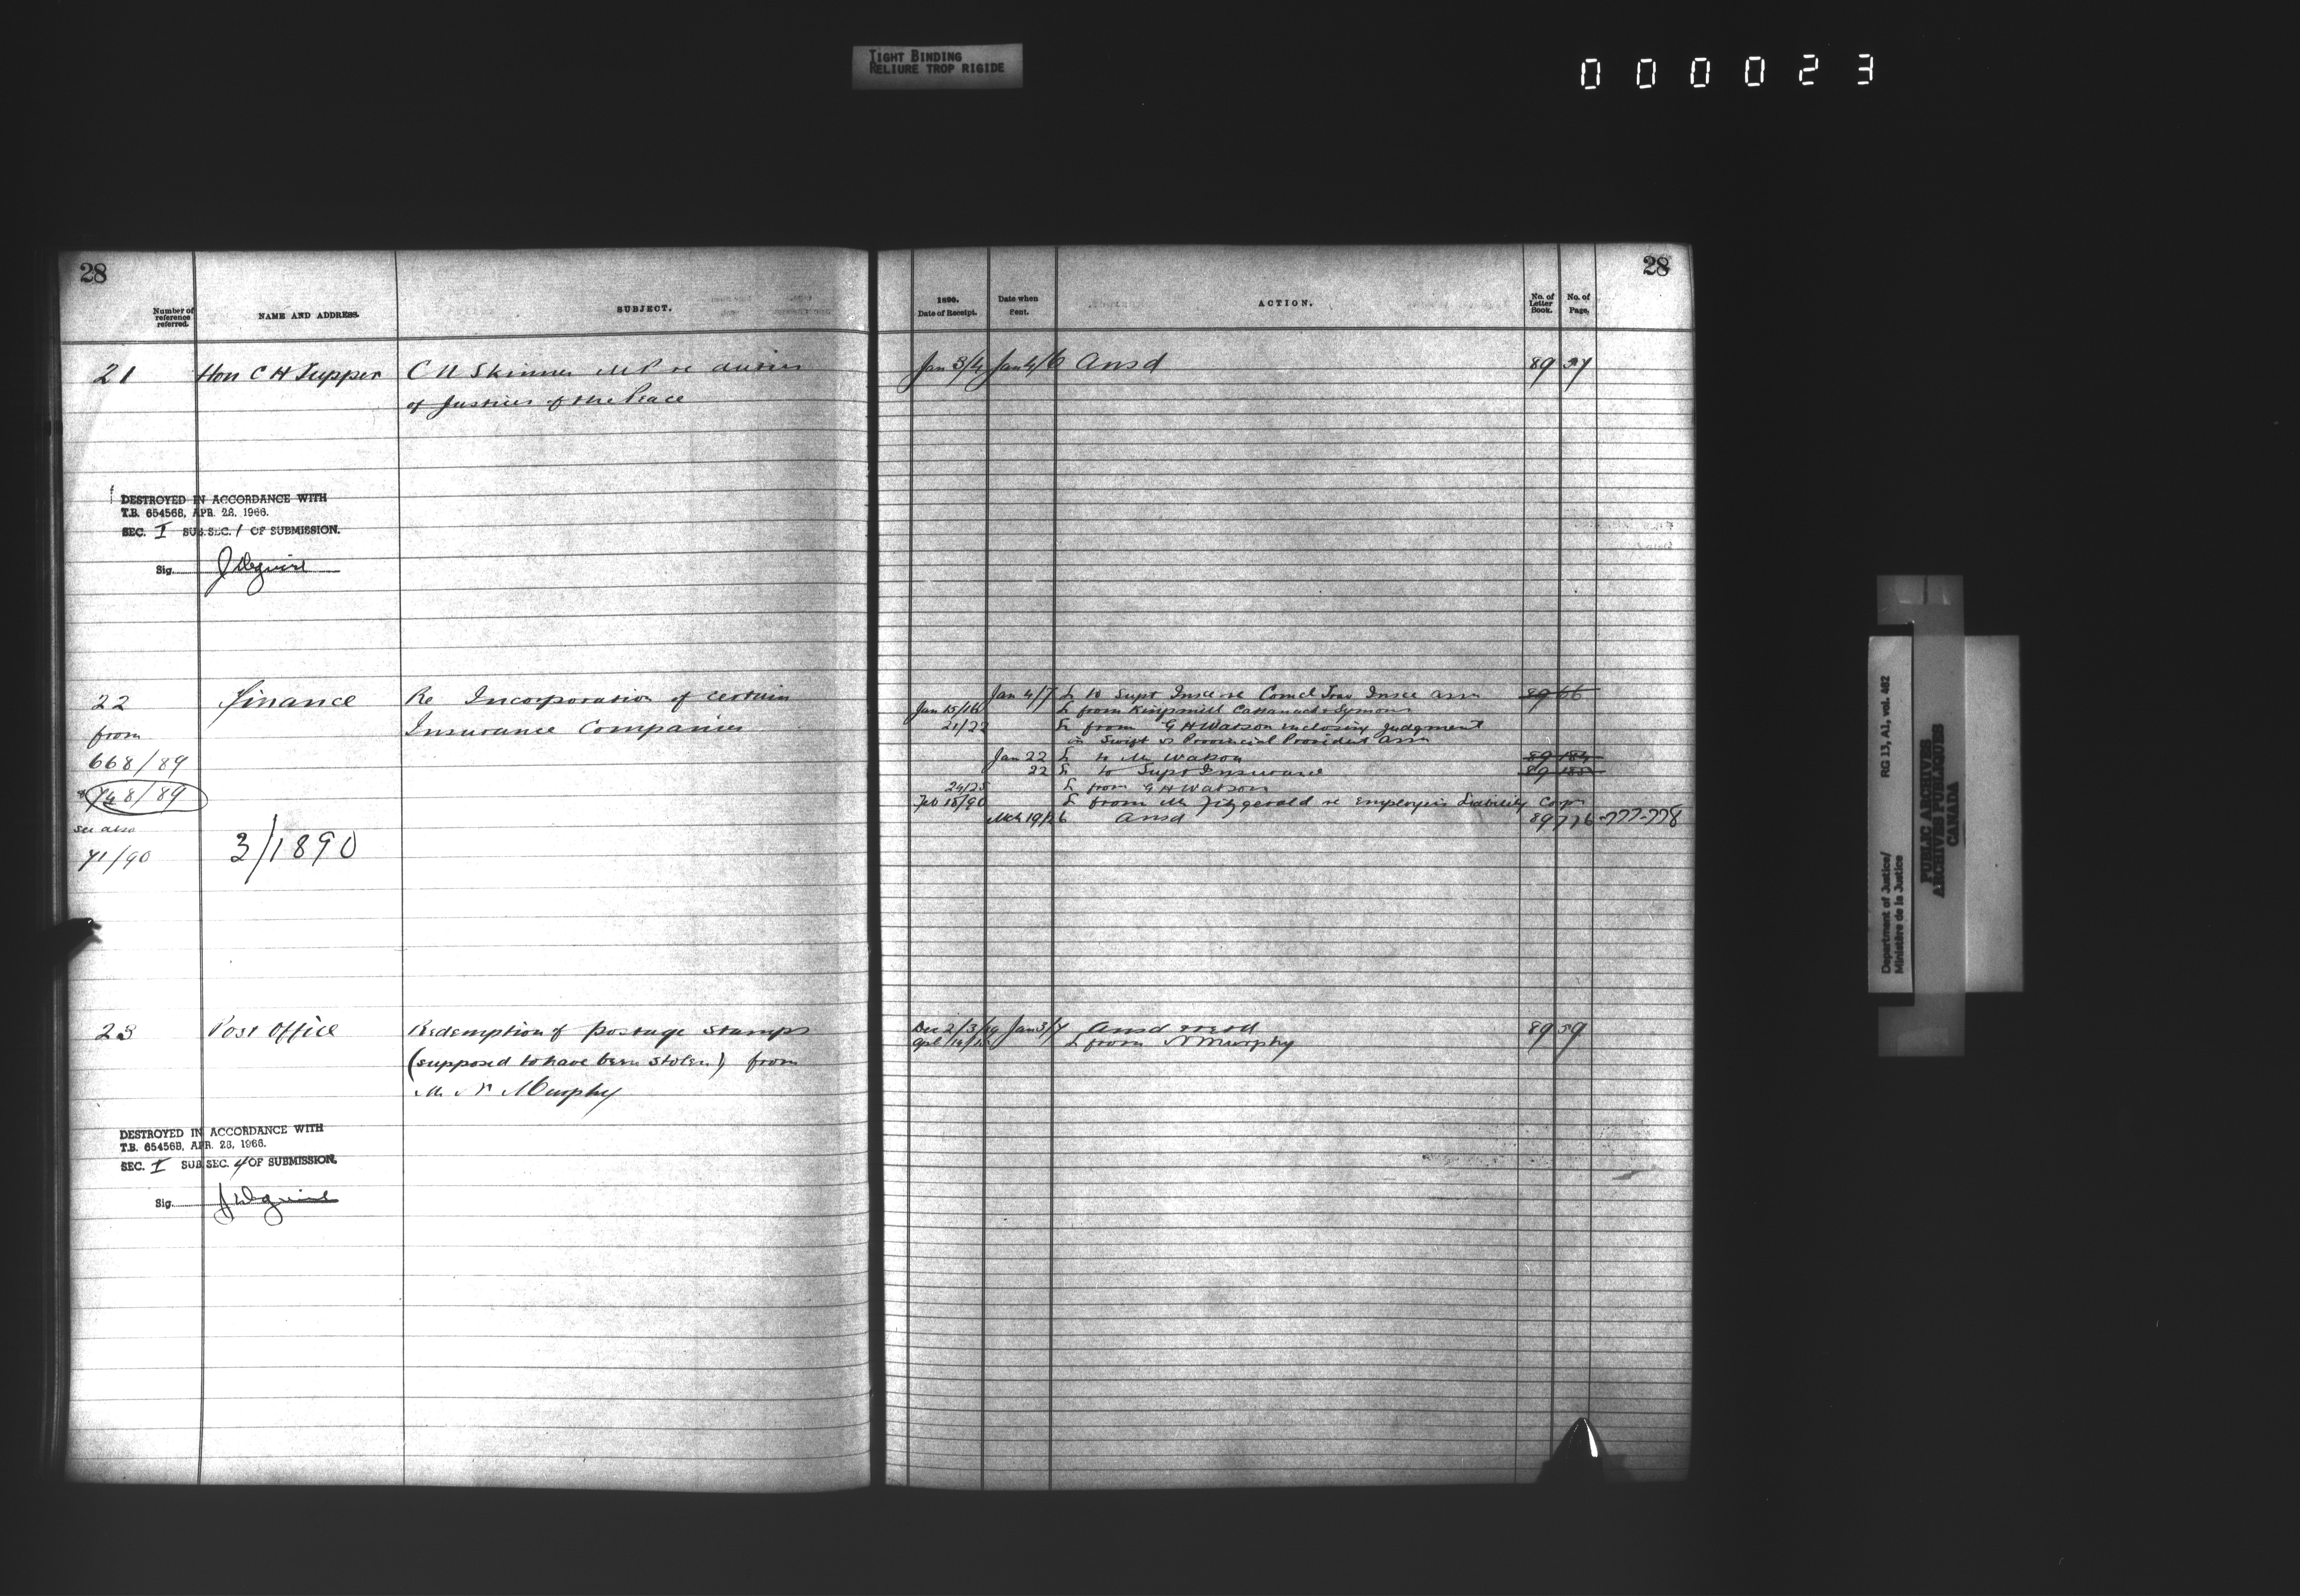 TIGHT BINDING
RELIURE TROP RIGIDE
000023
28
Number of reference referred.
NAME AND ADDRESS.
SUBJECT.
21 Hon C H Tupper C N Skinner MP re duties
of Justices of the Peace
DESTROYED IN ACCORDANCE WITH
T.B. 654568, APR. 28, 1966.
SEC. I SUB.SEC. 1 OF SUBMISSION.
Sig.
22 Finance Re Incorporation of certain
from Insurance Companies
668/89
748/89
see also
71/90 3/1890
23 Post Office Redemption of postage stamps
(supposed to have been stolen) from
Mr N Murphy
DESTROYED IN ACCORDANCE WITH
T.B. 654568, APR. 28, 1966.
SEC. I SUB SEC. 4 OF SUBMISSION.
Sig.
28
1890.
Date of Receipt.
Date when Sent.
ACTION.
No. of Letter Book.
No. of Page.
Jan 3/4 Jan 4/6 Ansd 89
Jan 4/7 L to Supt Insce re Comcl Trav Insce Assn 89 66
Jan 15/16 L from Kingsmill Cattanach & Symons
21/22 L from G H Watson enclosing judgment
in Swift vs Provincial Provident Assn
Jan 22 L to Mr Watson 89 184
22 L to Supt Insurance 89 185
24/25 L from G H Watson
Feb 18/90 L from Mr Fitzgerald re Employers Liability Corpn
Mch 19/26 Ansd 89 776-777-778
Dec 2/3/89 Jan 3/7 Ansd 89 59
Apl L from N Murphy
Department of Justice/
Ministère de la Justice
RG 13, A1, vol. 482
PUBLIC ARCHIVES
ARCHIVES PUBLIQUES
CANADA